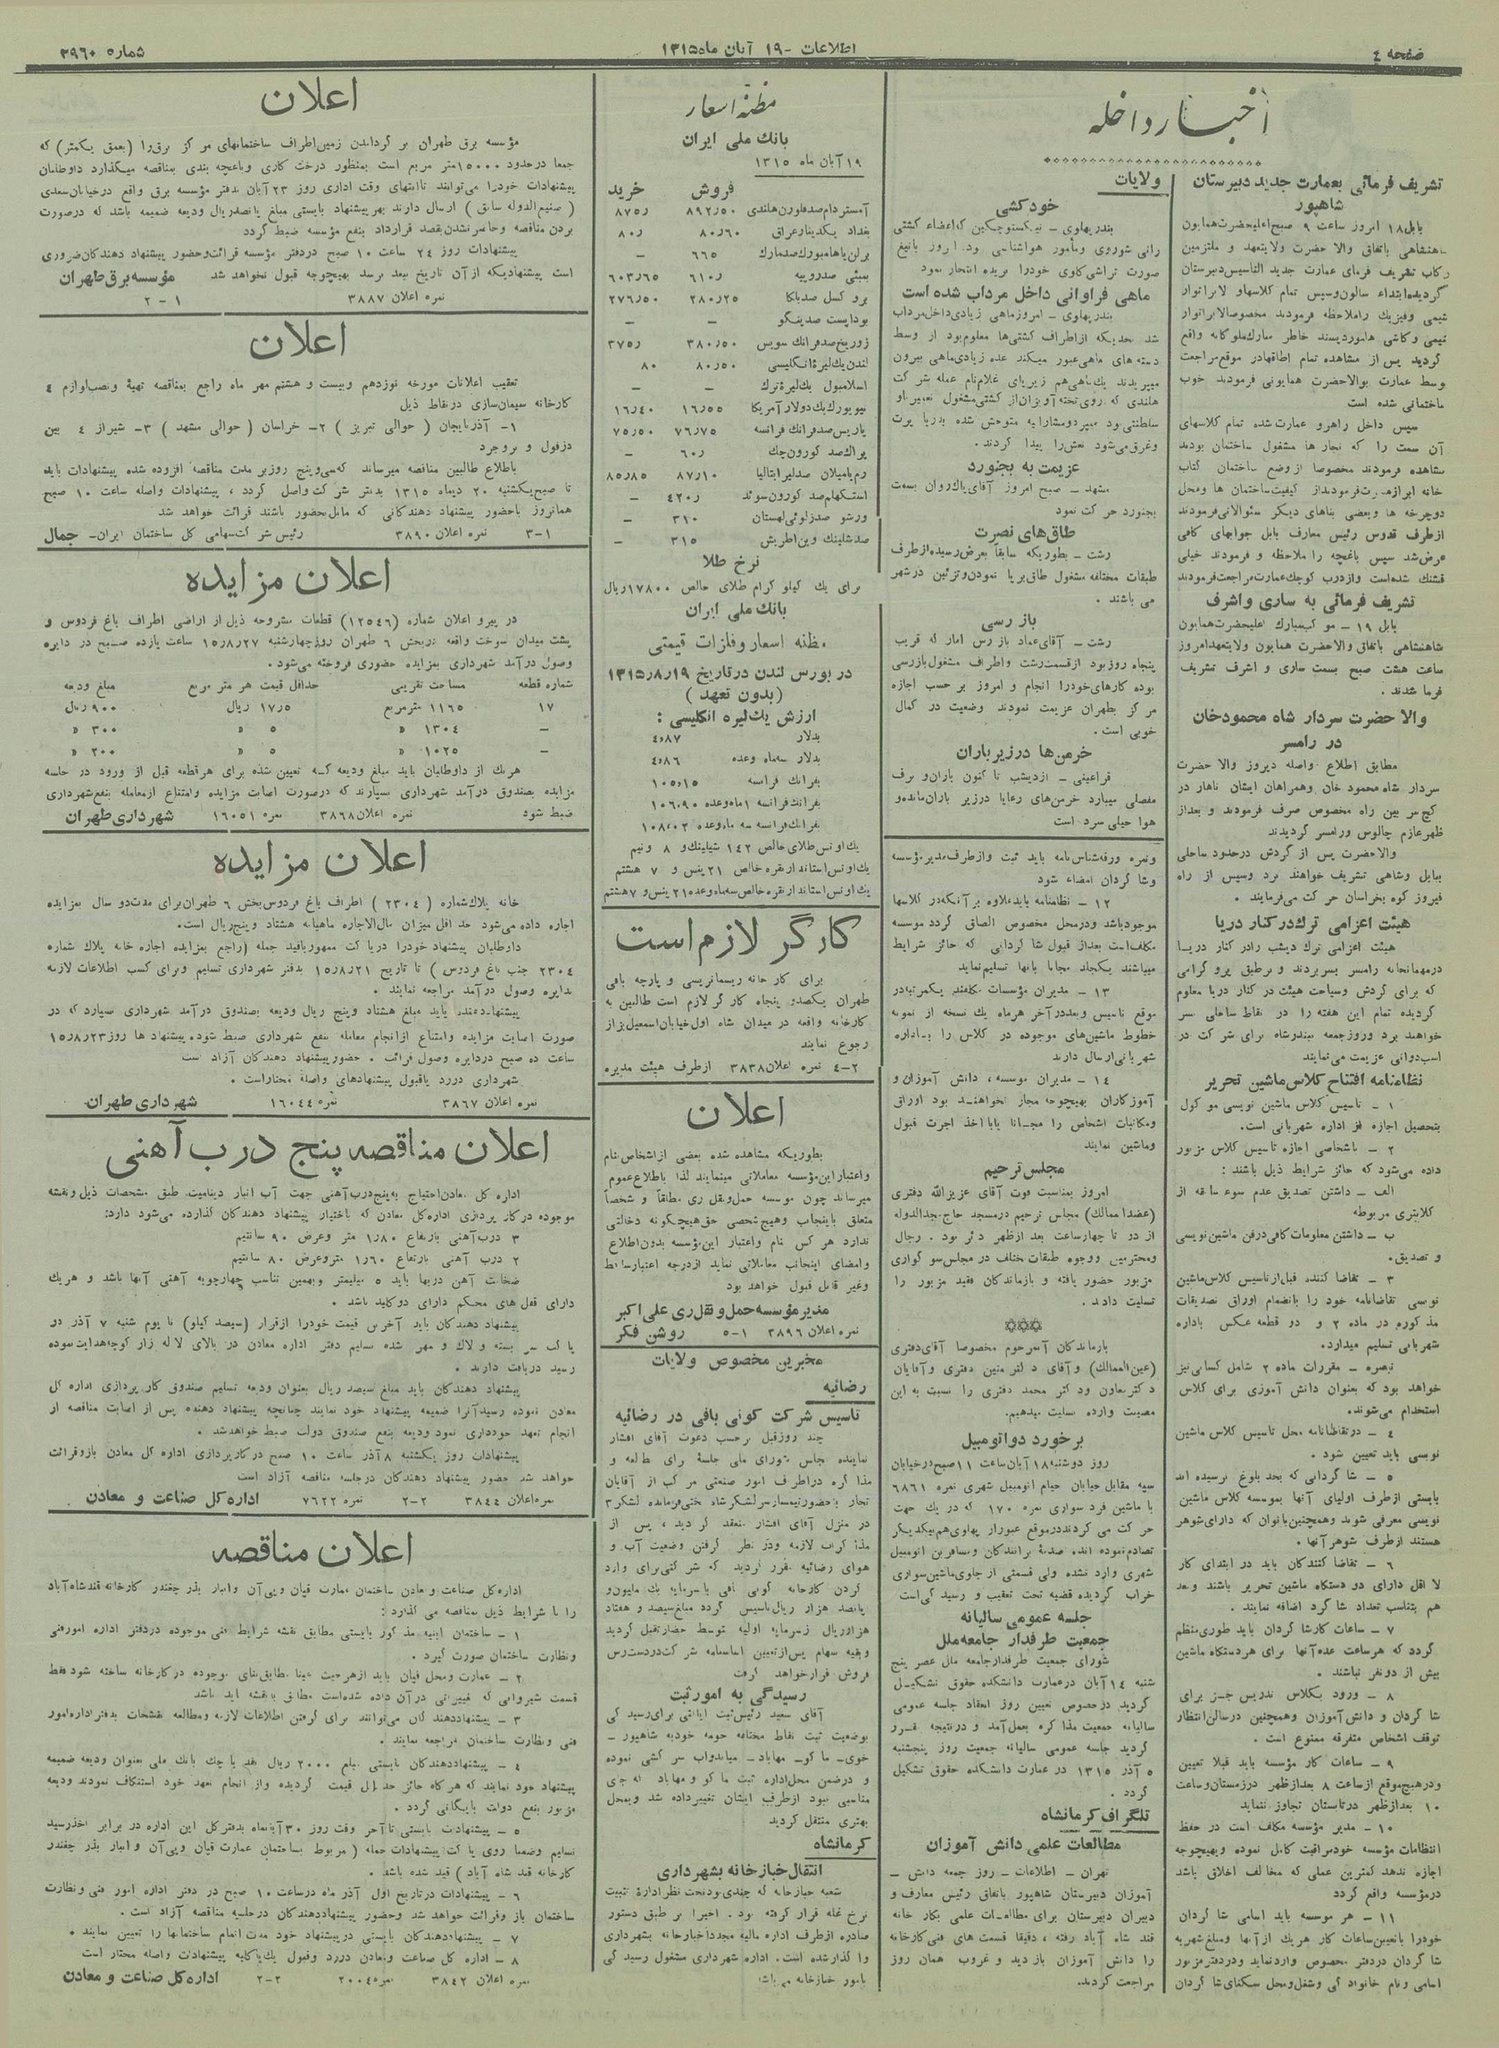 صفحه ٤
اطلاعات - ١٩ آبان ماه ١٣١٥
شماره ٣٩٦٠
أخبار داخله
تشریف فرمائی بعمارت جدید دبیرستان
شاهپور
بابل ١٨ امروز ساعت ٩ صبح اعلیحضرت همایون
شاهنشاهی باتفاق والا حضرت ولایتعهد و ملتزمین
رکاب تشریف فرمای عمارت جدید التاسیس دبیرستان
گردیده ابتداء سالون وسپس تمام کلاسها و لابراتوار
شیمی وفیزیک راملاحظه فرمودند مخصوصا لابراتوار
گردید پس از مشاهده تمام اطاقها در موقع مراجعت
وسط عمارت بوالاحضرت همایونی فرمودند خوب
ساختمانی شده است
سپس داخل راهرو عمارت شده تمام کلاسهای
آن سمت را که نجار ها مشغول ساختمان بودند
مشاهده فرمودند مخصوصا از وضع ساختمان کتاب
دوچرخه ها وبعضی بناهای دیگر سئوالاتی فرمودند
از طرف قدوس رئیس معارف بابل جوابهای کافی
عرض شد سپس باغچه را ملاحظه و فرمودند خیلی
قشنگ شده است و از درب کوچک عمارت مراجعت فرمودند
تشریف فرمائی به ساری و اشرف
بابل ١٩ - موکب مبارک اعلیحضرت همایون
شاهنشاهی باتفاق والاحضرت همایون ولایتعهد امروز
ساعت هشت صبح بسمت ساری و اشرف تشریف
فرما شدند .
والا حضرت سردار شاه محمود خان
در رامسر
مطابق اطلاع واصله دیروز والا حضرت
سردار شاه محمود خان وهمراهان ایشان ناهار در
کچسر بین راه مخصوص صرف فرمودند و بعد از
ظهر عازم چالوس ورامسر گردیدند
والاحضرت پس از گردش در حدود ساحلی
ببابل وشاهی تشریف خواهند برد وسپس از راه
فیروز کوه بخراسان حرکت می‌فرمایند .
هیئت اعزامی ترک در کنار دریا
هیئت اعزامی ترک دیشب را در کنار دریا
در مهمانخانه رامسر بسر بردند و بر طبق پروگرامی
که برای گردش وسیاحت هیئت در کنار دریا معلوم
گردیده تمام این هفته را در نقاط ساحلی بسر
خواهند برد وروز جمعه ببندرشاه برای شرکت در
اسب‌دوانی عزیمت می‌نمایند
نظامنامه افتتاح کلاس ماشین تحریر
١ - تاسیس کلاس ماشین نویسی موکول
بتحصیل اجازه از اداره شهربانی است.
٢ - باشخاصی اجازه تاسیس کلاس مزبور
داده می‌شود که حائز شرایط ذیل باشند :
الف - داشتن تصدیق عدم سوء سابقه از
کلانتری مربوطه
ب - داشتن معلومات کافی در فن ماشین نویسی
و تصدیق.
٣ - تقاضا کننده قبل از تاسیس کلاس ماشین
نویسی تقاضانامه خود را بانضمام اوراق تصدیقات
مذکوره در ماده ٢ و دو قطعه عکس باداره
شهربانی تسلیم میدارد.
تبصره - مقررات ماده ٢ شامل کسانی نیز
خواهد بود که بعنوان دانش آموزی برای کلاس
استخدام می‌شوند.
٤ - در تقاضانامه محل تاسیس کلاس ماشین
نویسی باید تعیین شود .
٥ - شاگردانی که بحد بلوغ نرسیده اند
بایستی از طرف اولیای آنها بموسسه کلاس ماشین
نویسی معرفی شوند وهمچنین بانوان که دارای شوهر
هستند از طرف شوهر آنها .
٦ - تقاضا کنندگان باید در ابتدای کار
لا اقل دارای دو دستگاه ماشین تحریر باشند وبعد
هم بتناسب تعداد شاگرد اضافه نمایند .
٧ - ساعات کار شاگردان باید طوری منظم
گردد که هر ساعت عده آنها برای هر دستگاه ماشین
بیش از دو نفر نباشند .
٨ - ورود بکلاس تدریس جز برای
شاگردان و دانش آموزان وهمچنین در سالن انتظار
توقف اشخاص متفرقه ممنوع است .
٩ - ساعات کار مؤسسه باید قبلا تعیین
ودر هیچ موقع از ساعت ٨ بعد از ظهر در زمستان وساعت
١٠ بعد از ظهر در تابستان تجاوز ننماید
١٠ - مدیر مؤسسه مکلف است در حفظ
انتظامات مؤسسه خود مراقبت کامل نموده وبهیچوجه
اجازه ندهد کمترین عملی که مخالف اخلاق باشد
در مؤسسه واقع گردد
١١ - هر موسسه باید اسامی شاگردان
خود را باتعیین ساعات کار هر یک از آنها ومبلغ شهریه
شاگردان در دفتر مخصوص وارد نماید ودر دفتر مزبور
اسامی ونام خانوادگی وشغل ومحل سکنای شاگردان
ولایات
خودکشی
بندر پهلوی - نیکسنوچکین که اعضاء کشتی
رانی شوروی ومأمور هواشناسی بود امروز باتیغ
صورت تراشی گلوی خود را بریده انتحار نمود
ماهی فراوانی داخل مرداب شده است
بندر پهلوی - امروز ماهی زیادی داخل مرداب
شد بحدیکه از اطراف کشتی‌ها معلوم بود از وسط
دسته های ماهی عبور میکند عده زیادی ماهی بیرون
وغرق می‌شود نعش را پیدا کردند .
عزیمت به بجنورد
مشهد - صبح امروز آقای پاک‌روان بسمت
بجنورد حرکت نمود
طاق‌های نصرت
رشت - بطوریکه سابقا بعرض رسیده از طرف
طبقات مختلفه مشغول طاق برپا نمودن وتزئین در شهر
می باشند .
بازرسی
رشت - آقای عماد بازرس آمار که قریب
پنجاه روز بود از قسمت رشت واطراف مشغول بازرسی
بوده کارهای خود را انجام و امروز بر حسب اجازه
مرکز بطهران عزیمت نمودند وضعیت در کمال
خوبی است .
خرمن‌ها در زیر باران
قراعینی - از دیشب تا کنون باران و برف
مفصلی میبارد خرمن‌های رعایا در زیر باران مانده و
هوا خیلی سرد است
ونمره ورقه شناسنامه باید ثبت و از طرف مدیر مؤسسه
وشاگردان امضاء شود
١٢ - نظامنامه باید علاوه بر آنکه در کلاسها
موجود باشد ودر محل مخصوص الصاق گردد موسسه
مکلف است بعد از قبول شاگردانی که حائز شرایط
میباشند یکجلد مجانا بآنها تسلیم نماید
١٣ - مدیران مؤسسات مکلفند یکمرتبه در
موقع تاسیس وبعد در آخر هر ماه یک نسخه از نمونه
خطوط ماشین‌های موجوده در کلاس را باداره
شهربانی ارسال دارند
١٤ - مدیران موسسه ، دانش آموزان و
آموزکاران بهیچوجه مجاز نخواهند بود اوراق
ومکاتبات اشخاص را مجانا یا با اخذ اجرت قبول
وماشین نمایند
مجلس ترحیم
امروز بمناسبت فوت آقای عزیزالله دفتری
(عضد الممالک) مجلس ترحیم در مسجد حاج مجدالدوله
از دو تا چهار ساعت بعد از ظهر دائر بود . رجال
ومحترمین ووجوه طبقات مختلف در مجلس سوگواری
مزبور حضور یافته و بازماندگان فقید مزبور را
تسلیت دادند .
بازماندگان آنمرحوم مخصوصا آقای دفتری
(عین الممالک) و آقای دکتر متین دفتری و آقایان
دکتر معاون ودکتر محمد دفتری را نسبت به این
مصیبت وارده تسلیت میدهیم.
برخورد دو اتومبیل
روز دوشنبه ١٨ آبان ساعت ١١ صبح در خیابان
سپه مقابل خیابان خیام اتومبیل شهری نمره ٦٨٦١
با ماشین فرد سواری نمره ١٧٠ که در یک جهت
حرکت می کردند در موقع عبور از پهلوی هم بیکدیگر
تصادم نموده اند. صدمه برانندگان ومسافرین اتومبیل
شهری وارد نشده ولی قسمتی از جلوی ماشین سواری
خراب گردیده قضیه تحت تعقیب و رسیدگی است
جلسه عمومی سالیانه
جمعیت طرفدار جامعه ملل
شورای جمعیت طرفدار جامعه ملل عصر پنج
شنبه ١٤ آبان در عمارت دانشکده حقوق تشکیل
گردید در خصوص تعیین روز انعقاد جلسه عمومی
سالیانه جمعیت مذاکره بعمل آمد و در نتیجه مقرر
گردید جلسه عمومی سالیانه جمعیت روز پنجشنبه
٥ آذر ١٣١٥ در عمارت دانشکده حقوق تشکیل
گردد .
تلگراف کرمانشاه
مطالعات علمی دانش آموزان
تهران - اطلاعات - روز جمعه دانش -
آموزان دبیرستان شاهپور باتفاق رئیس معارف و
دبیران دبیرستان برای مطالعات علمی بکارخانه
قند شاه آباد رفته ، دقیقا قسمت های فنی کارخانه
را دانش آموزان بازدید و غروب همان روز
مراجعت کردند.
مظنه اسعار
بانک ملی ایران
١٩ آبان ماه ١٣١٥
فروش خرید
آمستردام صد فلورن هلندی ٨٩٢/٥٠ ٨٧٥ر
بغداد یکدینار عراق ٨٠/٦٠ ٨٠ر
برلن یا هامبورک صد مارک ٦٦٥ -
بمبئی صد روپیه ٦١٠ر ٦٠٣/٦٥
بروکسل صد بلگا ٢٨٠/٢٥ ٢٧٦/٥٠
بوداپست صد پنگو - -
زوریخ صد فرانک سویس ٣٨٠/٥٠ ٣٧٥ر
لندن یک لیرهٔ انگلیسی ٨٠/٥٠ ٨٠
اسلامبول یک لیرهٔ ترک - -
نیویورک یک دولار آمریکا ١٦/٥٥ ١٦/٤٠
پاریس صد فرانک فرانسه ٧٦/٧٥ ٧٥/٥٠
پراک صد کورون چک ٦٠ر -
رم یا میلان صد لیر ایتالیا ٨٧/١٠ ٨٥/٨٥
استکهلم صد کورون سوئد ٤٢٠ر -
ورشو صد زلوتی لهستان ٣١٠ -
صد شلینک وین اطریش ٣١٥ -
نرخ طلا
برای یک کیلو گرام طلای خالص ١٧٨٠٠ ریال
بانک ملی ایران
مظنه اسعار و فلزات قیمتی
در بورس لندن در تاریخ ١٣١٥/٨/١٩
(بدون تعهد )
ارزش یک لیره انگلیسی :
بدلار ٤٫٨٧
بدلار سه ماه وعده ٤٫٨٦
بفرانک فرانسه ١٠٥٫١٥
بفرانک فرانسه ١ماه وعده ١٠٦٫٩٠
بفرانک فرانسه سه ماه وعده ١٠٨٫٠٢
یک اونس طلای خالص ١٤٢ شیلینک و ٨ ونیم
یک اونس استاندار نقره خالص ٢١ پنس و ٧ هشتم
یک اونس استاندار نقره خالص سه ماه وعده ٢١ پنس و ٧ هشتم
کارگر لازم است
برای کارخانه ریسمانریسی و پارچه بافی
طهران یکصد و پنجاه کارگر لازم است طالبین به
کارخانه واقعه در میدان شاه اول خیابان اسمعیل بزاز
رجوع نمایند
٤-٢ نمره اعلان ٣٨٣٨ از طرف هیئت مدیره
اعلان
بطوریکه مشاهده شده بعضی از اشخاص نام
واعتبار این مؤسسه معاملاتی مینمایند لذا باطلاع عموم
میرساند چون موسسه حمل و نقل ری مطلقاً و شخصاً
متعلق باینجانب وهیچ شخصی حق هیچگونه دخالتی
ندارد هر کس نام واعتبار این مؤسسه بدون اطلاع
وامضای اینجانب معاملاتی نماید از درجه اعتبار ساقط
وغیر قابل قبول خواهد بود
مدیر مؤسسه حمل و نقل ری علی اکبر
روشن فکر
نمره اعلان ٣٨٩٦ ١-٥
مخبرین مخصوص ولایات
رضائیه
تاسیس شرکت گونی بافی در رضائیه
چند روز قبل بر حسب دعوت آقای افشار
نماینده مجلس شورای ملی جلسهٔ برای مطالعه و
مذاکره در اطراف امور صنعتی مرکب از آقایان
در منزل آقای افشار منعقد گردید ، پس از
مذاکرات لازمه ودر نظر گرفتن وضعیت آب و
هوای رضائیه مقرر گردید که شرکتی برای وارد
کردن کارخانه گونی بافی با سرمایه یک ملیون و
پانصد هزار ریال تاسیس گردد مبلغ سیصد و هفتاد
هزار ریال از سرمایه اولیه توسط حضار تقبل گردید
وبقیه سهام پس از تعیین اساسنامه شرکت در دسترس
فروش قرار خواهد گرفت
رسیدگی به امور ثبت
آقای سعید رئیس ثبت ایالتی برای رسیدگی
بوضعیت ثبت نقاط مختلفه حومه خود به شاهپور -
خوی - ماکو - مهاباد - میاندوآب سرکشی نموده
و در ضمن محل اداره ثبت ماکو و مهاباد که جای
مناسبی نبود از طرف ایشان تغییر داده شد وبمحل
بهتری منتقل گردید
کرمانشاه
انتقال خبازخانه بشهرداری
شعبه خبازخانه که چندی بود تحت نظر ادارهٔ تثبیت
نرخ غله قرار گرفته بود . اخیرا بر طبق دستور
صادره از طرف اداره مالیه مجدداً خبازخانه بشهرداری
واگذار شده است. اداره شهرداری مشغول رسیدگی
بامور خبازخانه میباشد
اعلان
مؤسسه برق طهران برگرداندن زمین اطراف ساختمانهای مرکز برق را (بعمق یکمتر) که
جمعا در حدود ١٥٠٠٠ متر مربع است بمنظور درخت کاری و باغچه بندی بمناقصه میگذارد داوطلبان
پیشنهادات خود را میتوانند تا انتهای وقت اداری روز ٢٣ آبان بدفتر مؤسسه برق واقع در خیابان سعدی
( صنیع الدوله سابق ) ارسال دارند بهر پیشنهاد بایستی مبلغ پانصد ریال ودیعه ضمیمه باشد که در صورت
بردن مناقصه وحاضر نشدن بعقد قرارداد بنفع مؤسسه ضبط گردد
پیشنهادات روز ٢٤ ساعت ١٠ صبح در دفتر مؤسسه قرائت وحضور پیشنهاد دهندگان ضروری
است پیشنهادیکه از آن تاریخ ببعد برسد بهیچوجه قبول نخواهد شد مؤسسه برق طهران
نمره اعلان ٣٨٨٧ ١-٢
اعلان
تعقیب اعلانات مورخه نوزدهم وبیست و هشتم مهر ماه راجع بمناقصه تهیهٔ ونصب لوازم ٤
کارخانه سیمان سازی در نقاط ذیل
١- آذربایجان ( حوالی تبریز ) ٢- خراسان ( حوالی مشهد ) ٣- شیراز ٤ بین
دزفول و بروجرد
باطلاع طالبین مناقصه میرساند که سی و پنج روز بر مدت مناقصه افزوده شده پیشنهادات باید
تا صبح یکشنبه ٢٠ دیماه ١٣١٥ بدفتر شرکت واصل گردد ، پیشنهادات واصله ساعت ١٠ صبح
همانروز باحضور پیشنهاد دهندگانی که مایل بحضور باشند قرائت خواهد شد
٣-١ نمره اعلان ٣٨٩٠ رئیس شرکت سهامی کل ساختمان ایران - جمال
اعلان مزایده
در پیرو اعلان شماره (١٢٥٤٦) قطعات مشروحه ذیل از اراضی اطراف باغ فردوس و
پشت میدان سوخت واقعه در بخش ٦ طهران روز چهارشنبه ١٥/٨/٢٧ ساعت یازده صبح در دایره
وصول درآمد شهرداری بمزایده حضوری فروخته می‌شود .
شماره قطعه مساحت تقریبی حداقل قیمت هر متر مربع مبلغ ودیعه
١٧ ١١٦٥ مترمربع ١٧/٥ ریال ٩٠٠ ریال
- ١٣٠٤ « ٥ « ٣٠٠ «
- ١٠٢٥ « ٥ « ٢٠٠ «
هر یک از داوطلبان باید مبلغ ودیعه که تعیین شده برای هر قطعه قبل از ورود در جلسه
مزایده بصندوق درآمد شهرداری بسپارند که در صورت اصابت مزایده وامتناع از معامله بنفع شهرداری
ضبط شود نمره اعلان ٣٨٦٨ نمره ١٦٠٥١ شهرداری طهران
اعلان مزایده
خانه پلاک شماره ( ٢٣٠٤ ) اطراف باغ فردوس بخش ٦ طهران برای مدت دو سال بمزایده
اجاره داده می‌شود حد اقل میزان مال الاجاره ماهیانه هشتاد وپنج ریال است.
داوطلبان پیشنهاد خود را در پاکت ممهور باقید جمله (راجع بمزایده اجاره خانه پلاک شماره
٢٣٠٤ جنب باغ فردوس ) تا تاریخ ١٥/٨/٢١ بدفتر شهرداری تسلیم وبرای کسب اطلاعات لازمه
بدایره وصول درآمد مراجعه نمایند .
پیشنهاد دهنده باید مبلغ هشتاد وپنج ریال ودیعه بصندوق درآمد شهرداری بسپارد که در
صورت اصابت مزایده وامتناع از انجام معامله بنفع شهرداری ضبط شود. پیشنهاد ها روز ١٥/٨/٢٣
ساعت ده صبح در دایره وصول قرائت . حضور پیشنهاد دهندگان آزاد است
شهرداری در رد یا قبول پیشنهادهای واصله مختار است.
نمره اعلان ٣٨٦٧ نمره ١٦٠٤٤ شهرداری طهران
اعلان مناقصه پنج درب آهنی
اداره کل معادن احتیاج به پنج درب آهنی جهت آب انبار دینامیت طبق مشخصات ذیل ونقشه
موجوده در کارپردازی اداره کل معادن که باختیار پیشنهاد دهندگان گذارده می‌شود دارد:
٣ درب آهنی بارتفاع ١/٨٠ متر وعرض ٩٠ سانتیم
٢ درب آهنی بارتفاع ١/٦٠ متر وعرض ٨٠ سانتیم
ضخامت آهن دربها باید ٥ میلیمتر وبهمین تناسب چهارچوبه آهنی آنها باشد و هر یک
دارای قفل های محکم دارای دو کلید باشد .
پیشنهاد دهندگان باید آخرین قیمت خود را از قرار (سیصد کیلو) تا یوم شنبه ٧ آذر در
پاکت سر بسته و لاک و مهر شده تسلیم دفتر اداره معادن در بالای لاله زار کوچه هدایت نموده
رسید دریافت دارند .
پیشنهاد دهندگان باید مبلغ سیصد ریال بعنوان ودیعه تسلیم صندوق کارپردازی اداره کل
معادن نموده رسید آنرا ضمیمه پیشنهاد خود نمایند چنانچه پیشنهاد دهنده پس از اصابت مناقصه از
انجام تعهد خودداری نمود ودیعه بنفع صندوق دولت ضبط خواهد شد .
پیشنهادات روز یکشنبه ٨ آذر ساعت ١٠ صبح در کارپردازی اداره کل معادن باز و قرائت
خواهد شد حضور پیشنهاد دهندگان در جلسه مناقصه آزاد است
نمره اعلان ٣٨٤٤ ٢-٢ نمره ٧٦٢٢ اداره کل صناعت و معادن
اعلان مناقصه
اداره کل صناعت و معادن ساختمان عمارت قپان و پی آن وانبار بذر چغندر کارخانه قند شاه آباد
را با شرایط ذیل بمناقصه می گذارد :
١ - ساختمان ابنیه مذکور بایستی مطابق نقشه شرایط فنی موجوده در دفتر اداره امور فنی
ونظارت ساختمان صورت گیرد .
٢ - عمارت ومحل قپان باید از هر حیث عینا مطابق بنای موجوده در کارخانه ساخته شود فقط
قسمت شیروانی که تغییراتی در آن داده شده است مطابق با نقشه باید باشد
٣ - پیشنهاد دهندگان می‌توانند برای گرفتن اطلاعات لازمه ومطالعه نقشجات بدفتر اداره امور
فنی ونظارت ساختمان مراجعه نمایند .
٤ - پیشنهاد دهندگان بایستی مبلغ ٢٠٠٠ ریال نقد یا چک بانک ملی بعنوان ودیعه ضمیمه
پیشنهاد خود نمایند که هر گاه حائز حداقل قیمت گردیده واز انجام تعهد خود استنکاف نمودند ودیعه
مزبور بنفع دولت بایگانی گردد .
٥ - پیشنهادات بایستی تا آخر وقت روز ٣٠ آبانماه بدفتر کل این اداره در برابر اخذ رسید
تسلیم وضمنا روی پاکت پیشنهادات جمله ( مربوط بساختمان عمارت قپان و پی آن وانبار بذر چغندر
کارخانه قند شاه آباد ) قید شده باشد .
٦ - پیشنهادات در تاریخ اول آذر ماه در ساعت ١٠ صبح در دفتر اداره امور فنی ونظارت
ساختمان باز وقرائت خواهد شد وحضور پیشنهاد دهندگان در جلسه مناقصه آزاد است .
٧ - پیشنهاد دهندگان بایستی در پیشنهاد خود مدت اتمام ساختمانها را تعیین نمایند .
٨ - اداره کل صناعت ومعادن در رد وقبول یک یا کلیه پیشنهادات واصله مختار است
نمره اعلان ٣٨٤٢ نمره ٢٠٠٤ ٢-٢ اداره کل صناعت و معادن